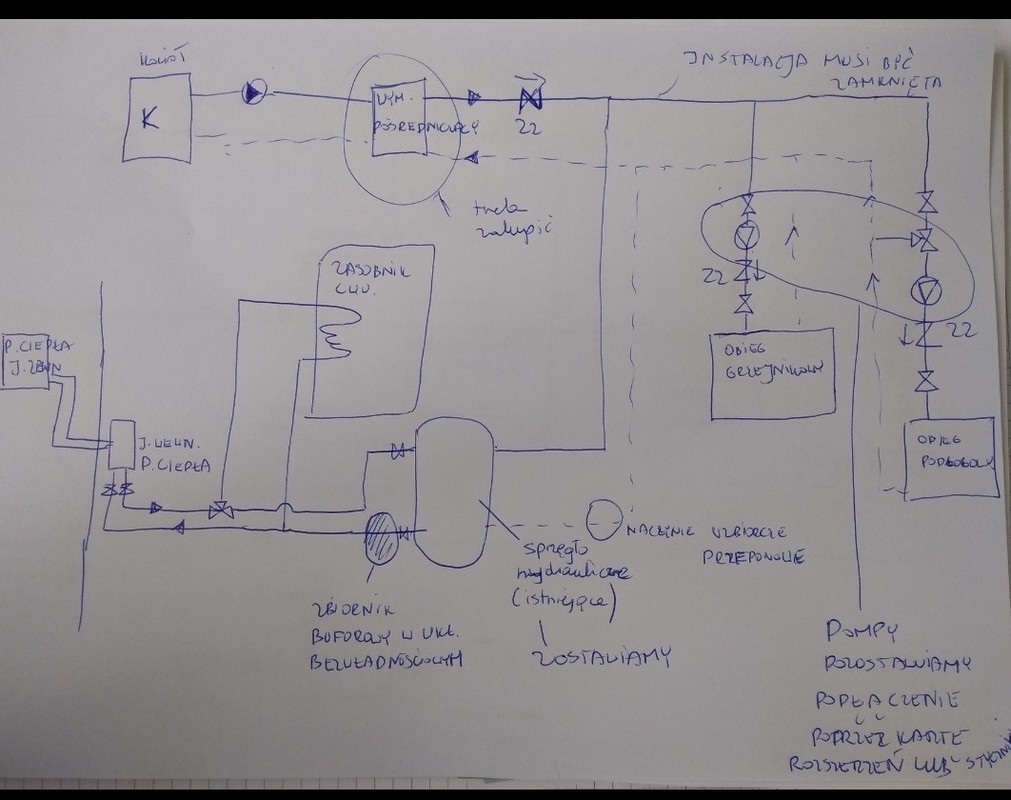 KOCIOŁ
K
WYM.
POŚREDNICZĄCY
ZZ
INSTALACJA MUSI BYĆ
ZAMKNIĘTA
trzeba
zakupić
ZASOBNIK
CWU.
P. CIEPŁA
J. ZEWN
J. WEWN.
P. CIEPŁA
ZZ
ZZ
OBIEG
GRZEJNIKOWY
OBIEG
PODŁOGOWY
NACZYNIE WZBIORCZE
PRZEPONOWE
sprzęgło
hydrauliczne
(istniejące)
ZOSTAWIAMY
ZBIORNIK
BUFOROWY W UKŁ.
BEZWŁADNOŚCIOWYM
POMPY
POZOSTAWIAMY
PODŁĄCZENIE
POPRZEZ KARTĘ
ROZSZERZEŃ LUB